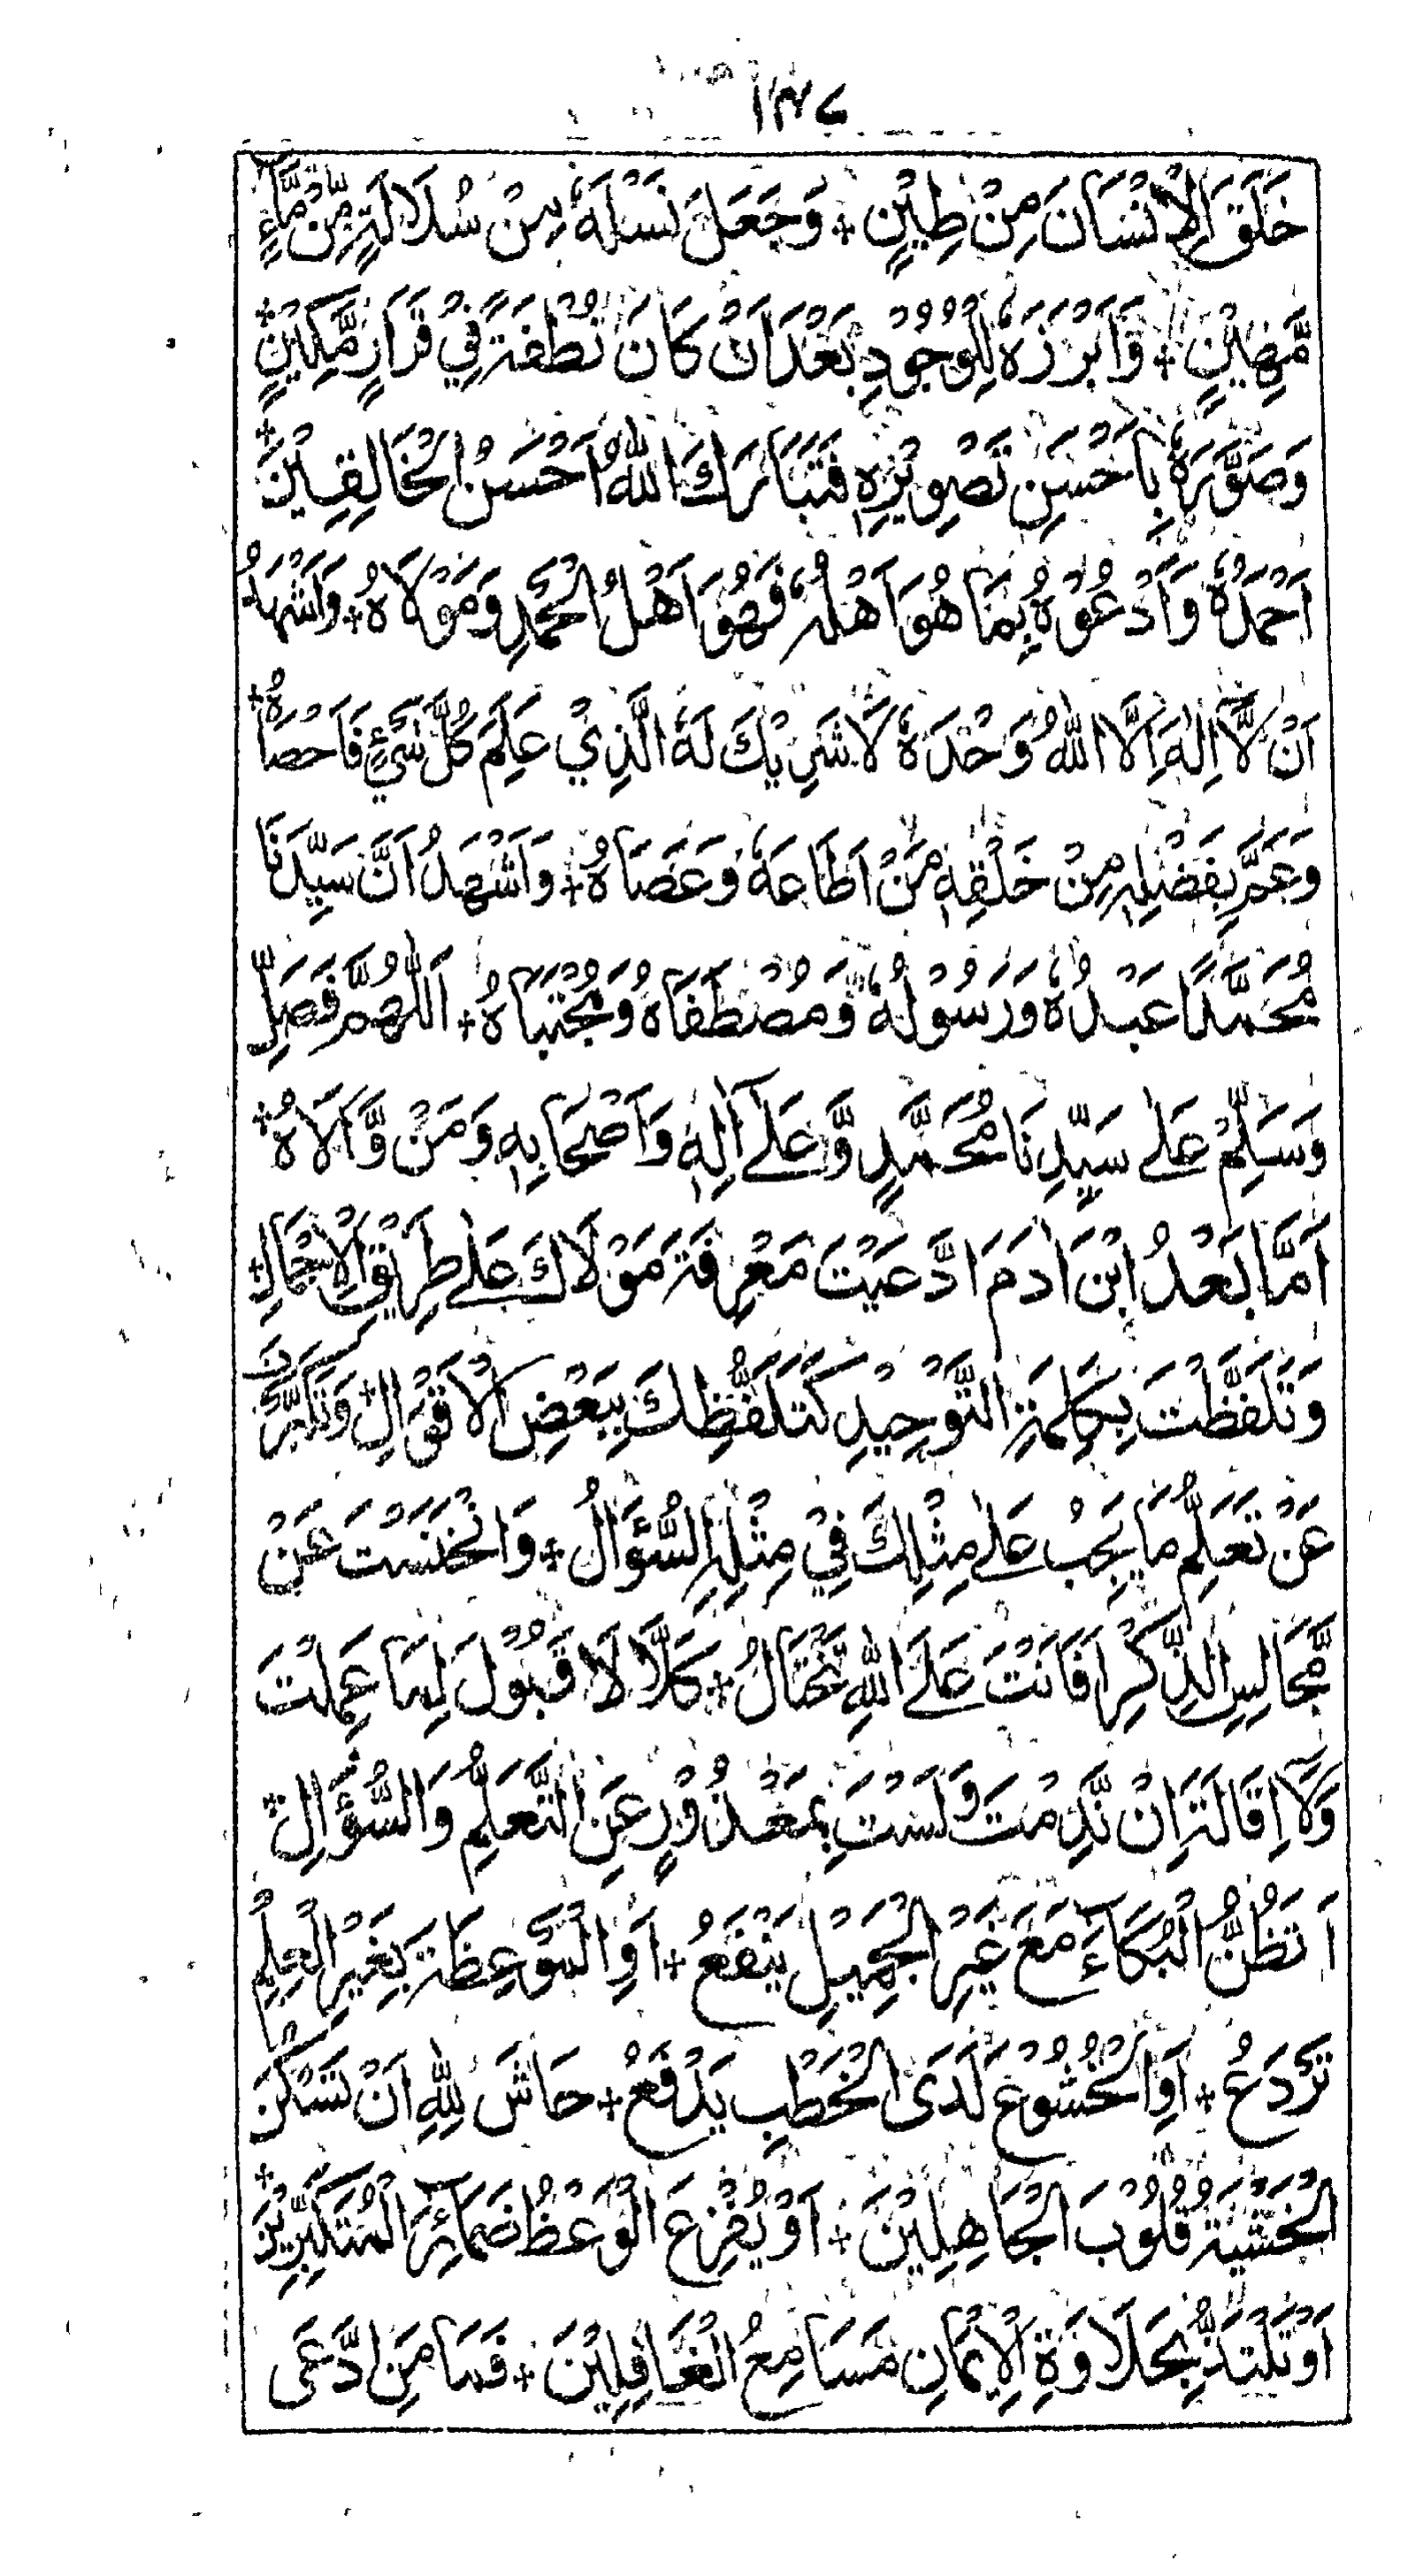 ١٣٧
خَلَقَ الْاِنْسَانَ مِنْ طِيْنٍ + وَجَعَلَ نَسْلَهٗ مِنْ سُلَالَةٍ مِّنْ مَّآءٍ
مَّهِيْنٍ + وَّاَبْرَزَهٗ لِلْوُجُوْدِ بَعْدَ اَنْ كَانَ نُطْفَةً فِيْ قَرَارٍ مَّكِيْنٍ +
وَصَوَّرَهٗ بِاَحْسَنِ تَصْوِيْرِهٖ فَتَبَارَكَ اللّٰهُ اَحْسَنُ الْخَالِقِيْنَ +
اَحْمَدُهٗ وَاَدْعُوْهُ بِمَا هُوَ اَهْلُهٗ فَهُوَ اَهْلُ الْحَمْدِ وَمَوْلَاهُ + وَاَشْهَدُ
اَنْ لَّا اِلٰهَ اِلَّا اللّٰهُ وَحْدَهٗ لَا شَرِيْكَ لَهٗ الَّذِيْ عَلِمَ كُلَّ شَيْءٍ فَاَحْصَاهُ +
وَعَمَّ بِفَضْلِهٖ مِنْ خَلْقِهٖ مَنْ اَطَاعَهٗ وَعَصَاهُ + وَاَشْهَدُ اَنَّ سَيِّدَنَا
مُحَمَّدًا عَبْدُهٗ وَرَسُوْلُهٗ وَمُصْطَفَاهُ وَمُجْتَبَاهُ + اَللّٰهُمَّ فَصَلِّ
وَسَلِّمْ عَلٰى سَيِّدِنَا مُحَمَّدٍ وَّعَلٰٓى اٰلِهٖ وَاَصْحَابِهٖ وَمَنْ وَّالَاهُ +
اَمَّا بَعْدُ اِبْنَ اٰدَمَ ادَّعَيْتَ مَعْرِفَةَ مَوْلَاكَ عَلٰى طَرِيْقِ الْاِجْمَالِ +
وَتَلَفَّظْتَ بِكَلِمَةِ التَّوْحِيْدِ كَتَلَفُّظِكَ بِبَعْضِ الْاَقْوَالِ + وَتَكَبَّرْتَ
عَنْ تَعَلُّمِ مَا يَجِبُ عَلٰى مِثْلِكَ فِيْ مِثْلِهِ السُّؤَالُ + وَانْخَنَسْتَ عَنْ
مَّجَالِسِ الذِّكْرِ اَفَاَنْتَ عَلَى اللّٰهِ تَحْتَالُ + كَلَّا لَا قَبُوْلَ لِمَا عَمِلْتَ
وَلَا اِقَالَةَ اِنْ نَّدِمْتَ وَلَسْتَ بِمَعْذُوْرٍ عَنِ التَّعَلُّمِ وَالسُّؤَالِ +
اَتَظُنُّ الْبُكَآءَ مَعَ غَيْرِ الْجَمِيْلِ يَنْفَعُ + اَوِ الْمَوْعِظَةَ بِغَيْرِ الْعِلْمِ
تَرْدَعُ + اَوِ الْخُشُوْعَ لَدَى الْخَطْبِ يَدْفَعُ + حَاشَ لِلّٰهِ اَنْ تَسْكُنَ
الْخَشْيَةُ قُلُوْبَ الْجَاهِلِيْنَ + اَوْ يُفْزِعَ الْوَعْظُ ضَمَآئِرَ الْمُتَكَبِّرِيْنَ +
اَوْ تَلْتَذَّ بِحَلَاوَةِ الْاِيْمَانِ مَسَامِعُ الْغَافِلِيْنَ + فَمَا مَنِ ادَّعَى